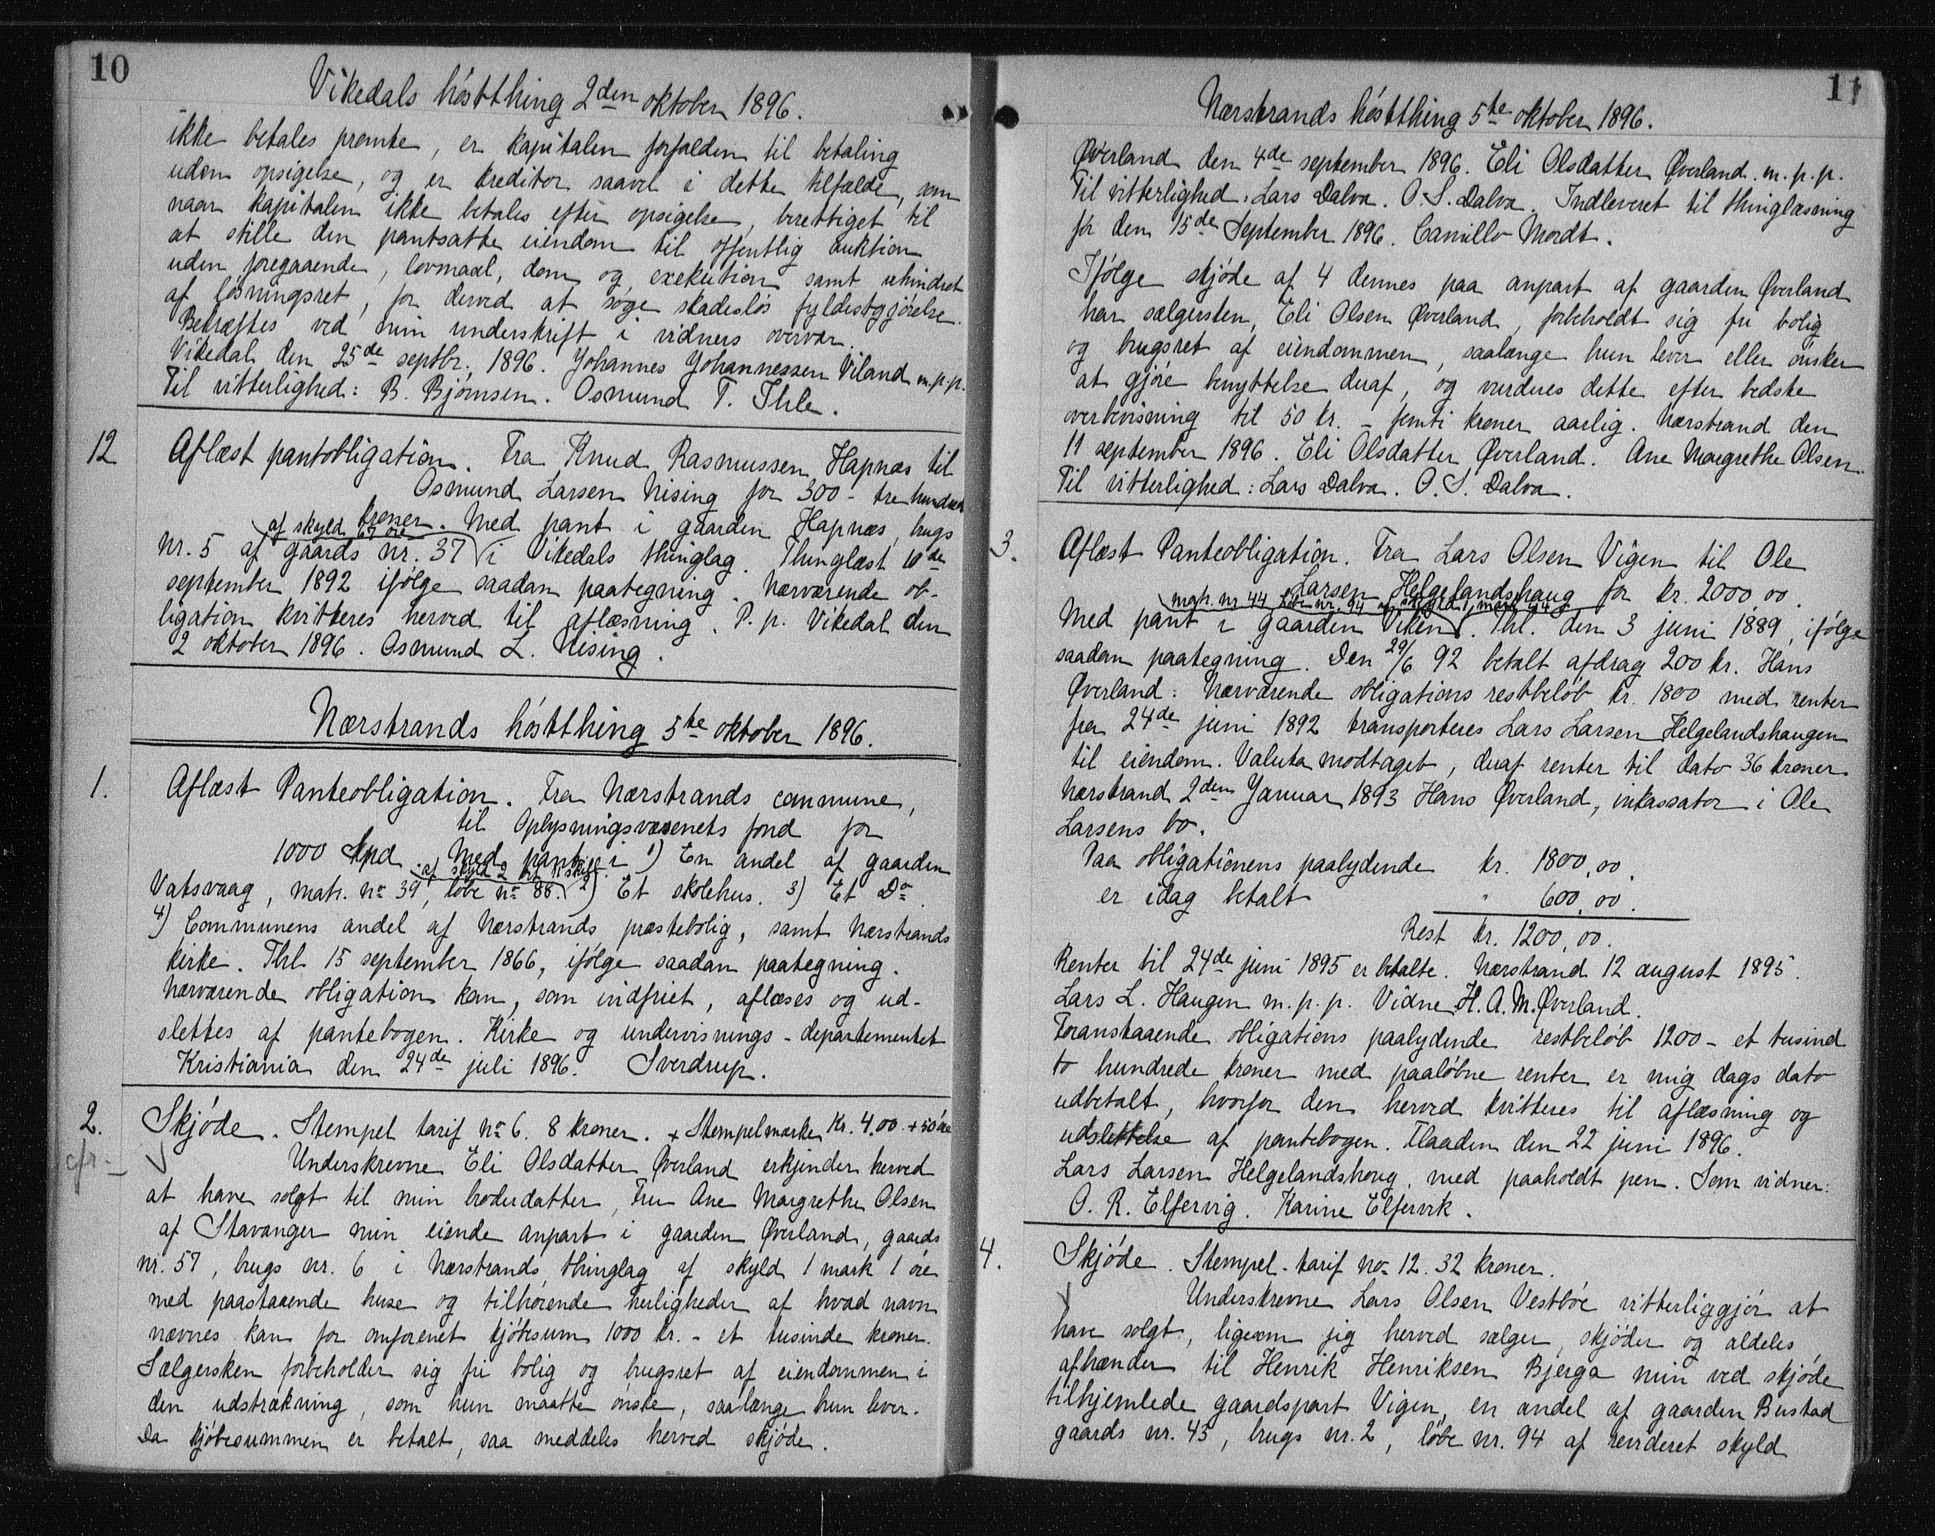 10
Vikedals hóstthing 2den oktober 1896.
ikke betales promte, er kapitalen forfalden til betaling
uden opsigelse, og er kreditor saavel i dette tilfælde, som
naar kapitalen ikke betales efter opsigelse, berettiget til
at stille den pantsatte eiendom til offentlig auktion
uden foregaaende lovmaal, dom og exekution samt uhindret
af løsningsret, for derved at søge skadesløs fyldestgjørelse.
Bekræftes ved min underskrift i vidners overvær.
Vikedal den 25de septbr. 1896. Johannes Johannessen Viland m.p.p.
Til vitterlighed: B. Bjørnsen. Osmund T. Ihle.
12 Aflæst pantobligation. Fra Knud Rasmussen Hapnæs til
Osmund Larsen Nising for 300 - tre hundrede
kroner. Med pant i gaarden Hapnæs, brugs
af skyld 67 øre
nr. 5 af gaards nr. 37 i Vikedals thinglag. Thinglæst 10de
september 1892 ifølge saadan paategning. Nærværende ob-
ligation kvitteres herved til aflæsning. P. p. Vikedal den
2 oktober 1896. Osmund L. Nising.
Nærstrands hóstthing 5te oktober 1896.
1. Aflæst Panteobligation. Fra Nærstrands commune,
til Oplysningsvæsenets fond for
1000 Spd. Med pant i 1) En andel af gaarden
af skyld 2
Vatsvaag, matr. no 39, løbe no 86. 2) Et skolehus. 3) Et Do.
4) Communens andel af Nærstrands præstebolig, samt Nærstrands
kirke. Thl. 15 september 1866, ifølge saadan paategning.
Nærværende obligation kan, som indfriet, aflæses og ud-
slettes af pantebogen. Kirke og undervisnings-departementet
Kristiania den 24de juli 1896. Sverdrup.
2. Skjøde. Stempel tarif no 6. 8 kroner. + Stempelmærke Kr. 4.00 + 50 øre
cfr.
Underskrevne Eli Olsdatter Øverland erkjender herved
at have solgt til min broderdatter, Fru Ane Margrethe Olsen
af Stavanger min eiende anpart i gaarden Øverland, gaards
nr. 57, brugs nr. 6 i Nærstrands thinglag af skyld 1 mark 1 øre
med paastaaende huse og tilhørende herligheder af hvad navn
nævnes kan for omforenet kjøbesum 1000 kr. - et tusinde kroner.
Sælgersken forbeholder sig fri bolig og brugsret af eiendommen i
den udstrækning, som hun maatte ønske, saalænge hun lever.
Da kjøbesummen er betalt, saa meddeles herved skjøde.
11
Nærstrands hóstthing 5te oktober 1896.
Øverland den 4de september 1896. Eli Olsdatter Øverland. m.p.p.
Til vitterlighed: Lars Dalva. O. S. Dalva. Indleveret til thinglæsning
før den 15de September 1896. Camillo Mordt.
Ifølge skjøde af 4 dennes paa anpart af gaarden Øverland
har sælgersken, Eli Olsen Øverland, forbeholdt sig fri bolig
og brugsret af eiendommen, saalænge hun lever eller ønsker
at gjøre benyttelse deraf, og vurderes dette efter bedste
overbevisning til 50 kr. - femti kroner aarlig. Nærstrand den
11 september 1896. Eli Olsdatter Øverland. Ane Margrethe Olsen.
Til vitterlighed: Lars Dalva. O. S. Dalva.
3. Aflæst Panteobligation. Fra Lars Olsen Vigen til Ole
Larsen Helgelandshaug for kr. 2000.00.
matr. nr 44 løbe nr. 94 af skyld 1 mark 44
Med pant i gaarden Viken. Thl. den 3 juni 1889, ifølge
saadan paategning. Den 29/6 92 betalt afdrag 200 kr. Hans
Øverland: Nærværende obligations restbeløb kr. 1800 med renter
fra 24de juni 1892 transporteres Lars Larsen Helgelandshaugen
til eiendom. Valuta modtaget, deraf renter til dato 36 kroner.
Nærstrand 2den Januar 1893 Hans Øverland, inkassator i Ole
Larsens bo.
Paa obligationens paalydende kr. 1800,00.
er idag betalt " 600,00.
Rest kr. 1200,00.
Renter til 24de juni 1895 er betalte. Nærstrand 12 august 1895.
Lars L. Haugen m.p.p. Vidne H. A. M. Øverland.
Foranstaaende obligations paalydende restbeløb 1200 - et tusind
to hundrede kroner med paaløbne renter er mig dags dato
udbetalt, hvorfor den herved kvitteres til aflæsning og
udslettelse af pantebogen. Flaaden den 22 juni 1896.
Lars Larsen Helgelandshoug, med paaholdt pen. Som vidner:
O. R. Elfervig. Karine Elfervik.
4. Skjøde. Stempel-tarif no 12. 32 kroner.
Underskrevne Lars Olsen Vestbøe vitterliggjør at
have solgt, ligesom jeg herved sælger, skjøder og aldeles
afhænder til Henrik Henriksen Bjerga min ved skjøde
tilhjemlede gaardspart Vigen, en andel af gaarden Bustad
gaards nr. 45, brugs nr. 2, løbe nr. 94 af revideret skyld